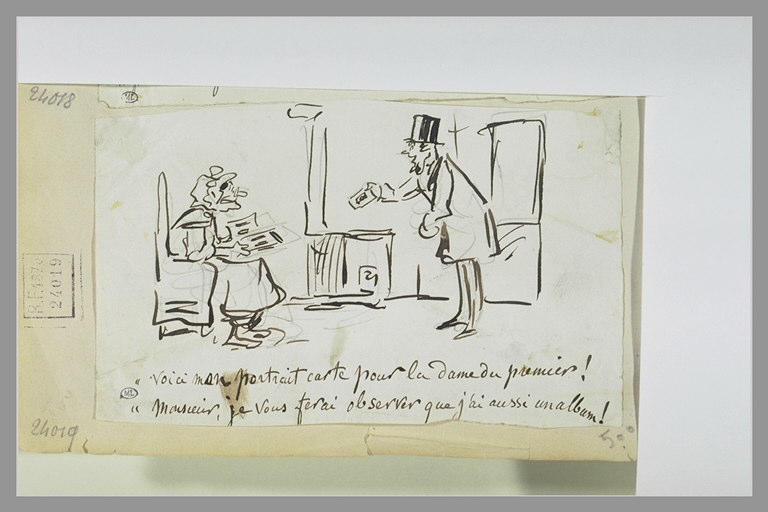 24018
ML
R.F.
24019
21
" Voici mon portrait carte pour la dame du premier!
" Monsieur, je vous ferai observer que j'ai aussi un album!
ML
24019